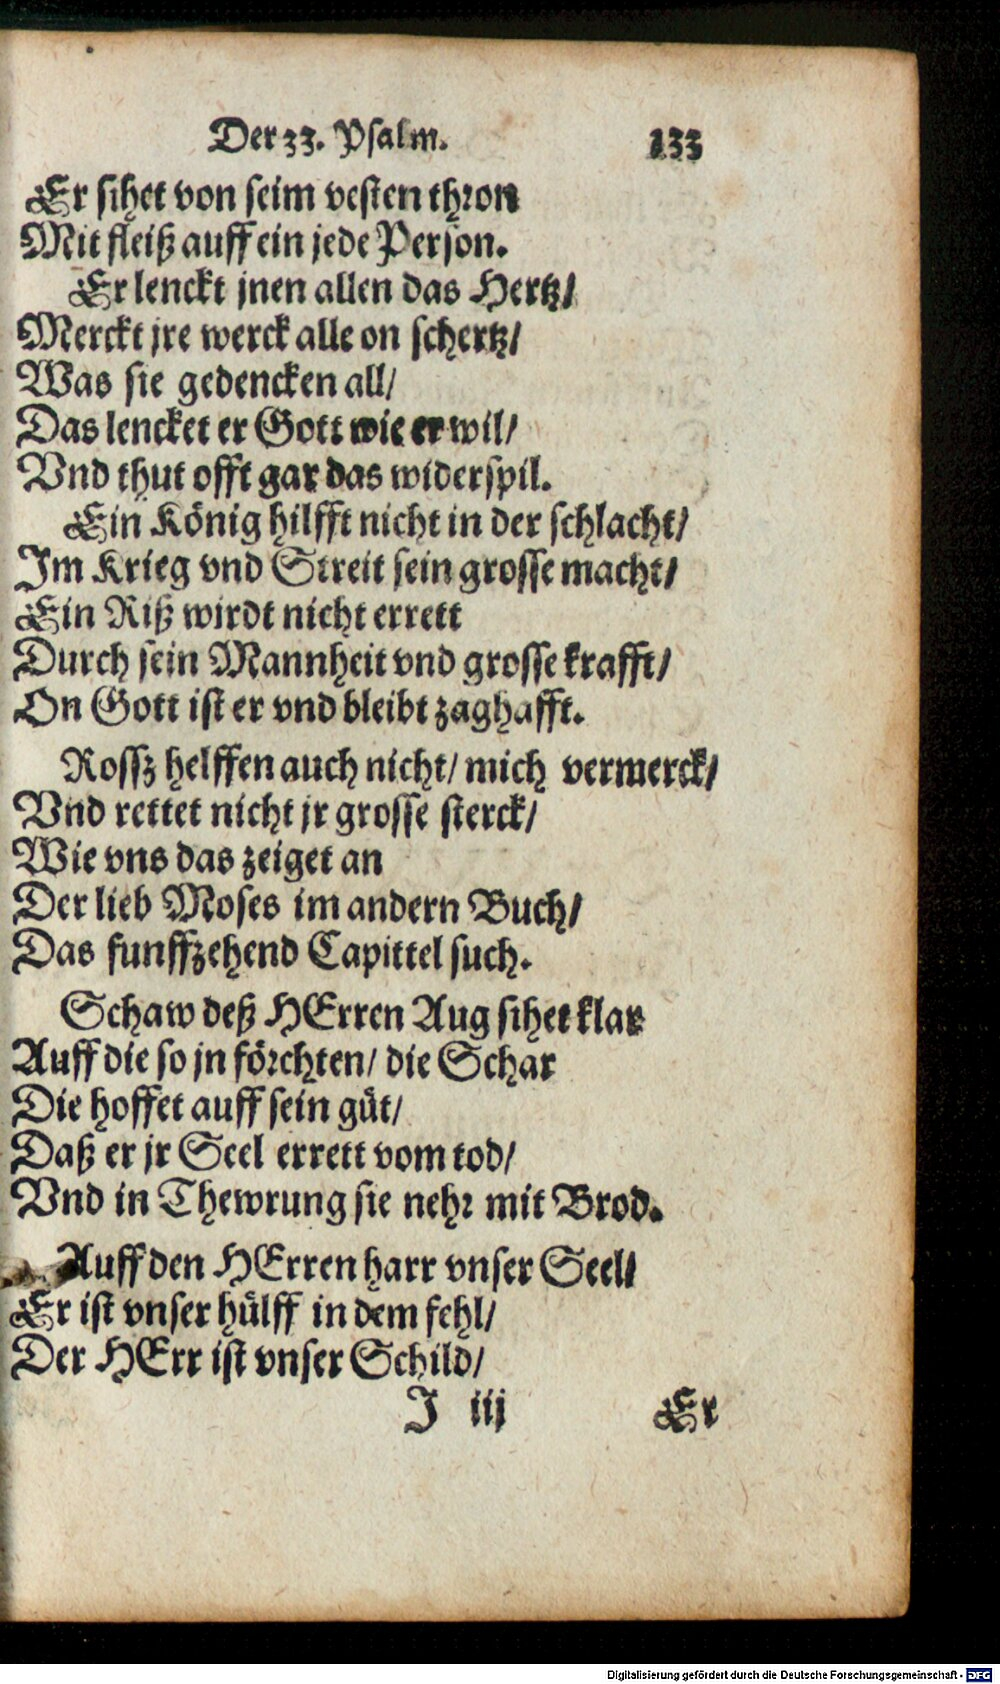 Der 33. Psalm. 133
Er sihet von seim vesten thron
Mit fleiß auff ein jede Person.
Er lenckt jnen allen das Hertz/
Merckt jre werck alle on schertz/
Was sie gedencken all/
Das lencket er Gott wie er wil/
Vnd thut offt gar das widerspil.
Ein König hilfft nicht in der schlacht/
Im Krieg vnd Streit sein grosse macht/
Ein Riß wirdt nicht errett
Durch sein Mannheit vnd grosse krafft/
On Gott ist er vnd bleibt zaghafft.
Rossz helffen auch nicht/ mich vermerck/
Vnd rettet nicht jr grosse sterck/
Wie vns das zeiget an
Der lieb Moses im andern Buch/
Das funffzehend Capittel such.
Schaw deß HErren Aug sihet klar
Auff die so jn förchten/ die Schar
Die hoffet auff sein güt/
Daß er jr Seel errett vom tod/
Vnd in Thewrung sie nehr mit Brod.
Auff den HErren harr vnser Seel/
Er ist vnser hülff in dem fehl/
Der HErr ist vnser Schild/
J iij Er
Digitalisierung gefördert durch die Deutsche Forschungsgemeinschaft - DFG